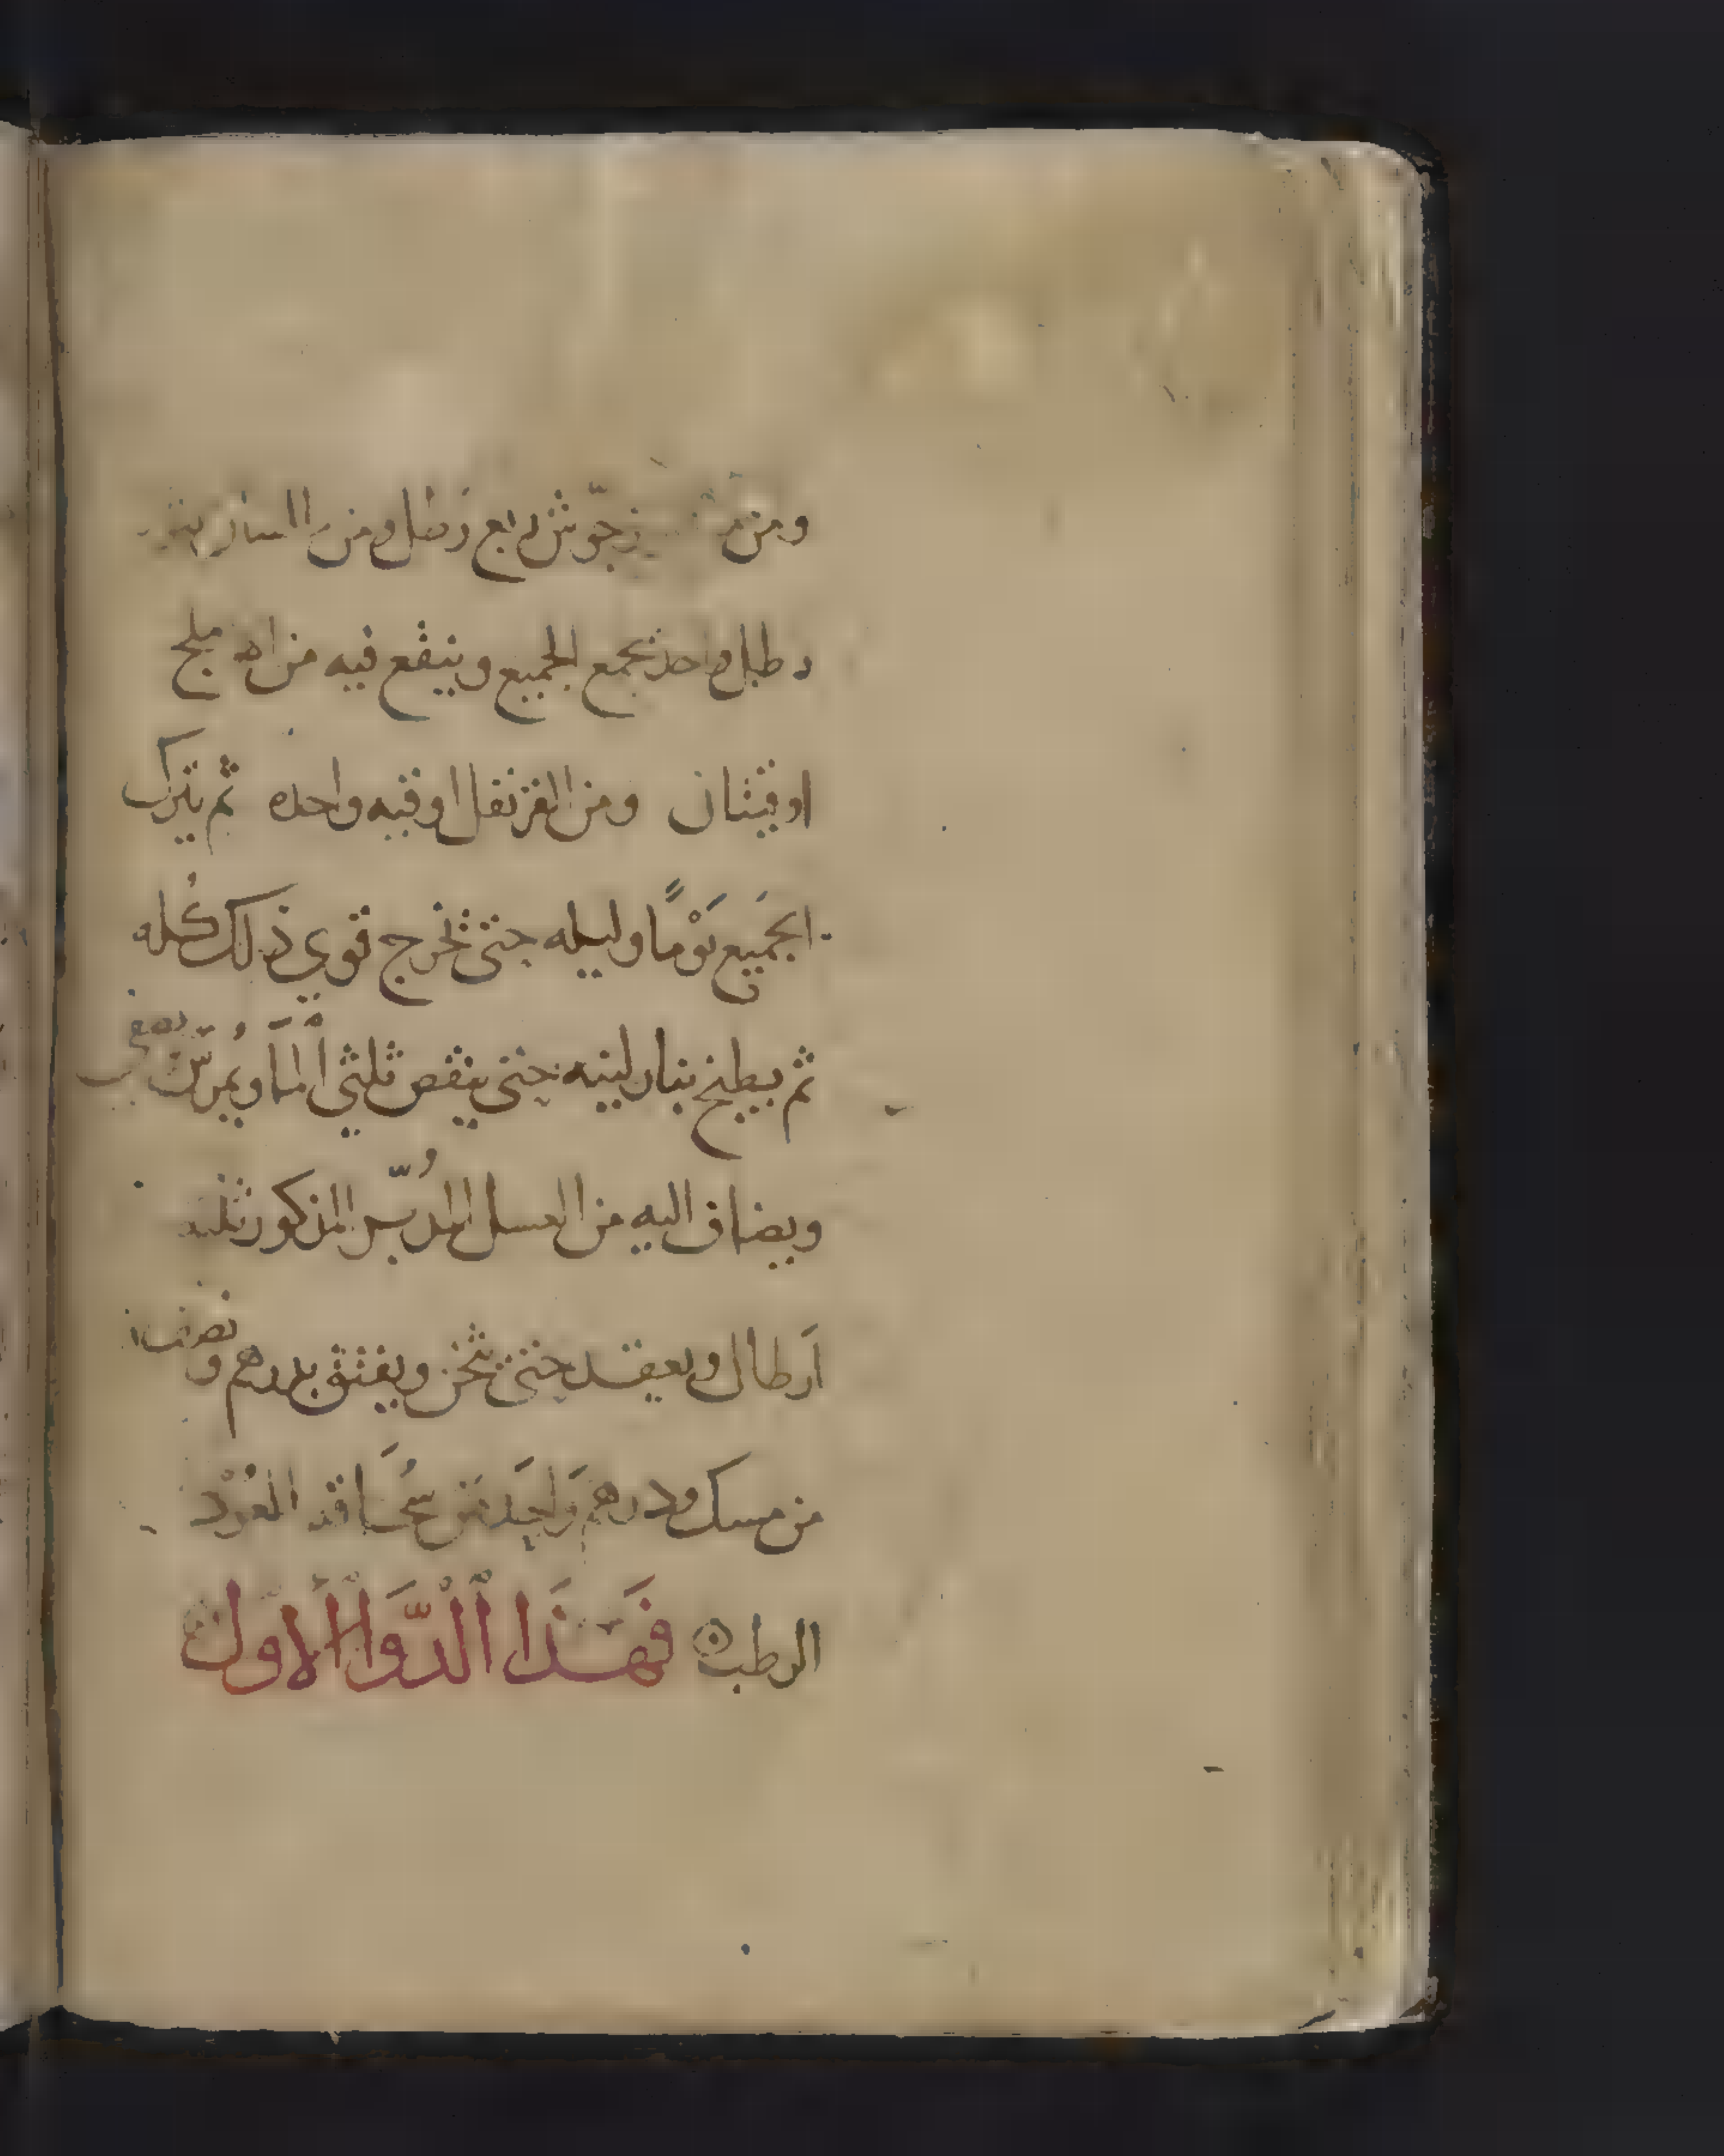 ومن زجوّش رابع رطل ومن
رطل واحد يجمع الجميع وينقع فيه من اهـ ملج
اوقيتان ومن القرنفل اوقيه واحده ثم يترك
الجَميع يَوْمًا وليله حتى تخرج قوي ذلك كُله
ثم يطبخ بنار لينه حتى ينقص ثلثي المآ ويُمرّس
ويضاف اليه من العسل المُدبّر المذكور ثلثه
اَرطال ويعقد حتى يثخن ويفتق بدرهم ونصف
من مسك ودرهم وَاحِد من سُحَاقه العُوْد
الرطب فَهَذَا اَلْدَّوَا اْلاَول